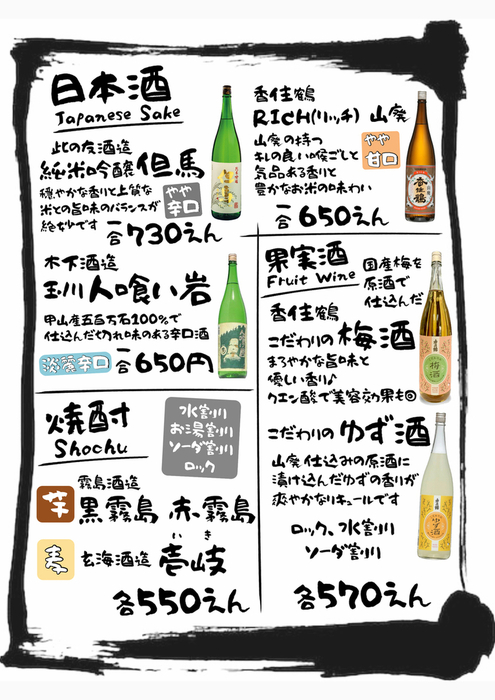 日本酒
Japanese Sake
此の友酒造
純米吟醸 但馬
穏やかな香りと上質な
米との旨味のバランスが
絶妙です
やや
辛口
一合730えん
木下酒造
玉川 人喰い岩
甲山産五百万石100%で
仕込んだ切れ味のある辛口酒
淡麗辛口
一合650円
香住鶴
RICH(リッチ) 山廃
山廃の持つ
キレの良い喉ごしと
気品ある香りと
豊かなお米の味わい
やや
甘口
一合650えん
果実酒
Fruit Wine
国産梅を
原酒で
仕込んだ
香住鶴
こだわりの梅酒
まろやかな旨味と
優しい香り♪
クエン酸で美容効果も◎
こだわりの ゆず酒
山廃仕込みの原酒に
漬け込んだゆずの香りが
爽やかなリキュールです
ロック、水割り
ソーダ割り
各570えん
焼酎
Shochu
水割り
お湯割り
ソーダ割り
ロック
霧島酒造
芋 黒霧島 赤霧島
いき
麦 玄海酒造 壱岐
各550えん
香住鶴
梅酒
ゆず酒